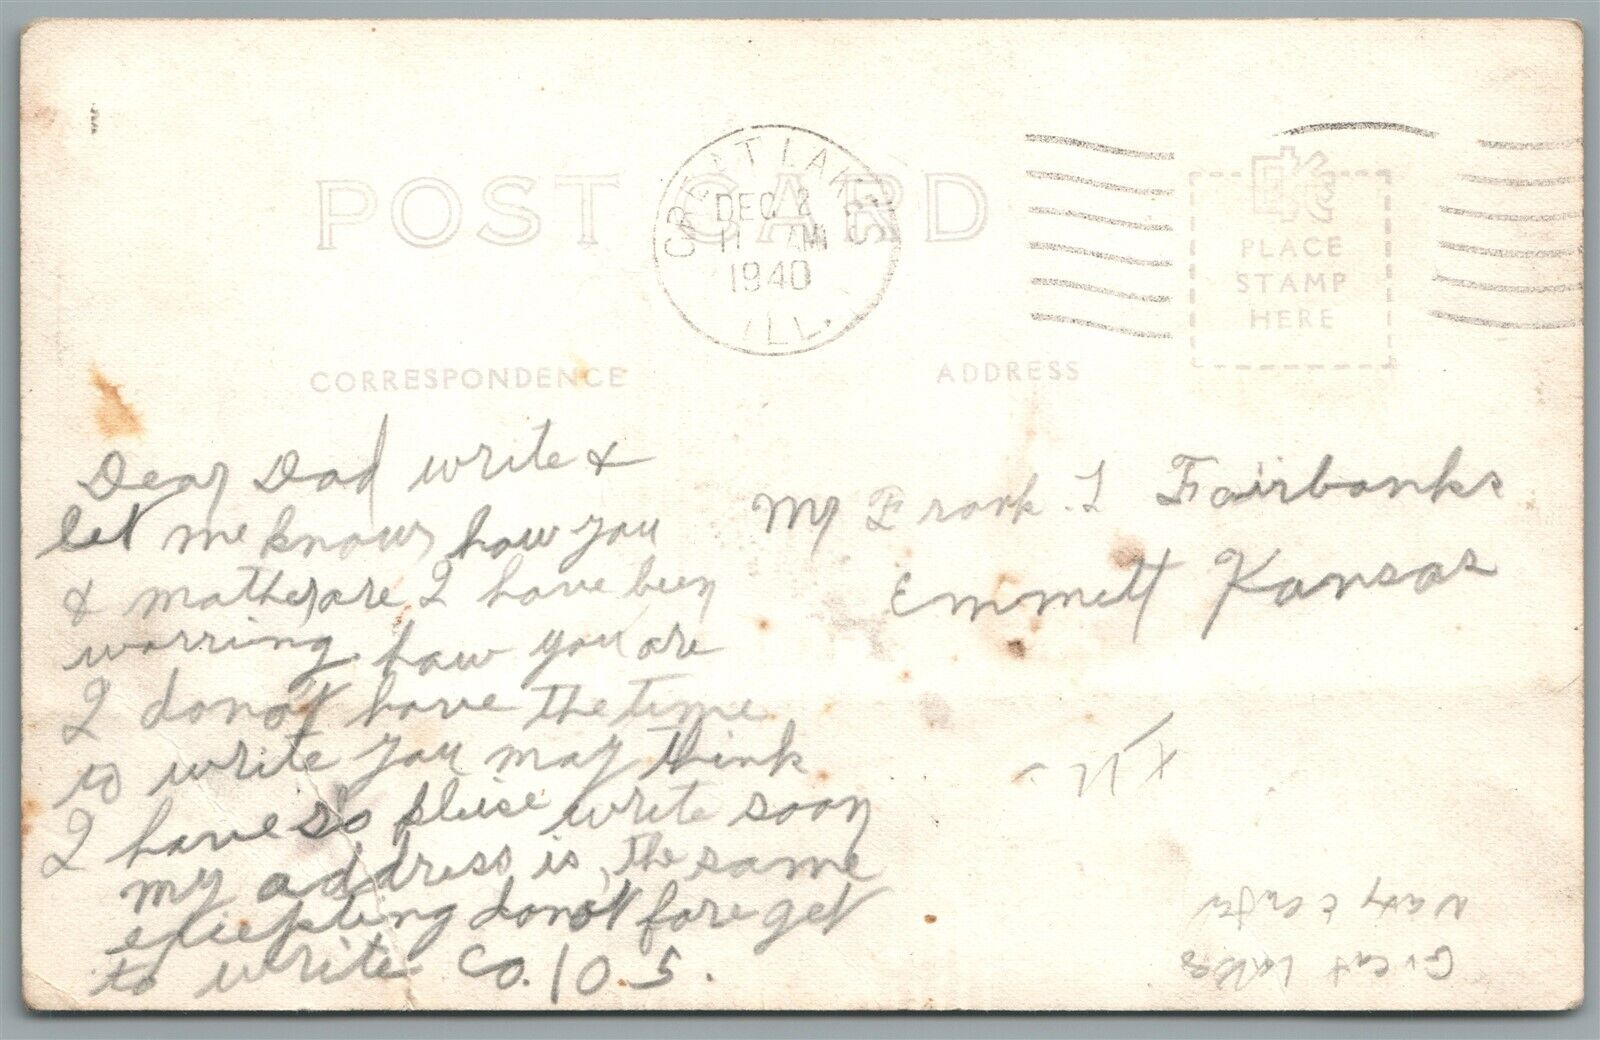 POST CARD
GREAT LAKES
DEC 2
11 AM
1940
ILL.
PLACE
STAMP
HERE
CORRESPONDENCE
ADDRESS
Dear Dad write &
let me know how you
& mother are I have been
worring how you are
I donot have the time
to write you may think
I have so pleise write soon
my address is the same
epciepting donot fore get
to write Co. 105.
Mr Frank. L Fairbanks
Emmett Kansas
Ill
Great Lakes